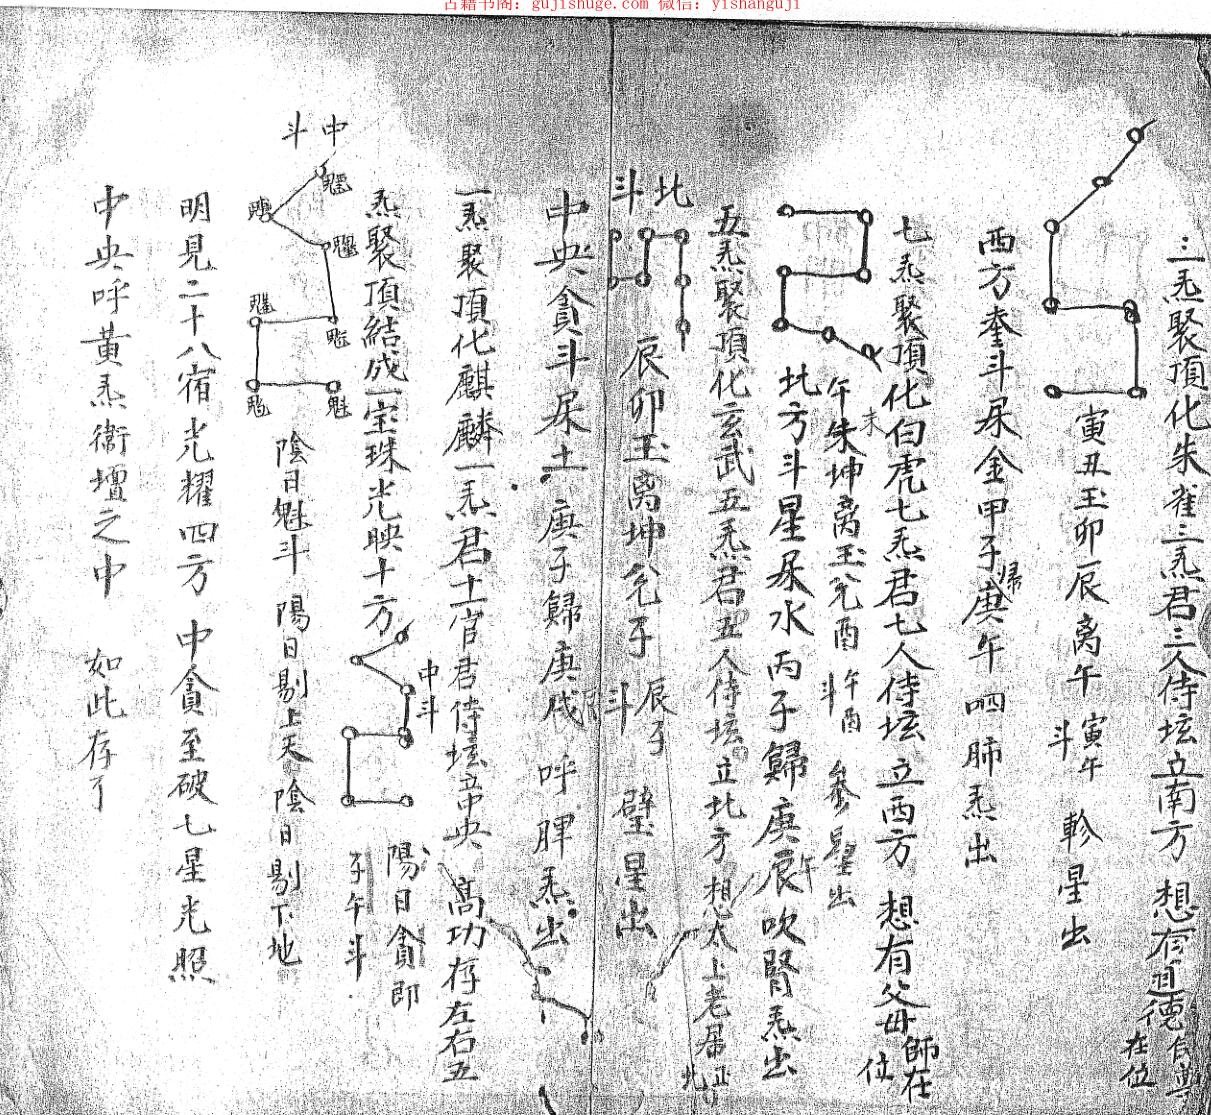 古籍书阁：gujishuge.com 微信：yishanguji
三炁聚頂化朱雀三炁君三人侍坛立南方 想有道德天尊在位
寅丑玉卯辰离午 寅午斗 軫星出
西方奎斗尿金甲子歸庚午 呬肺炁出
七炁聚頂化白虎七炁君七人侍坛 立西方 想有父母師在位
午朱坤离玉兑酉 午酉斗 參星出
北方斗星尿水丙子歸庚辰 吹腎炁出
五炁聚頂化玄武五炁君五人侍坛立北方 想太上老君
北斗
辰卯玉离坤兑子 辰子斗 壁星出
中央貪斗尿土 庚子歸庚戌 呼脾炁出
一炁聚頂化麒麟一炁君十一官君侍坛立中央 高功存左右五
炁聚頂結成一宝珠光映十方
中斗
陽日貪即
子午斗
中斗
魁
陰日魁斗 陽日剔上天陰日剔下地
明見二十八宿光耀四方 中貪至破七星光照
中央呼黃炁衞壇之中 如此存了